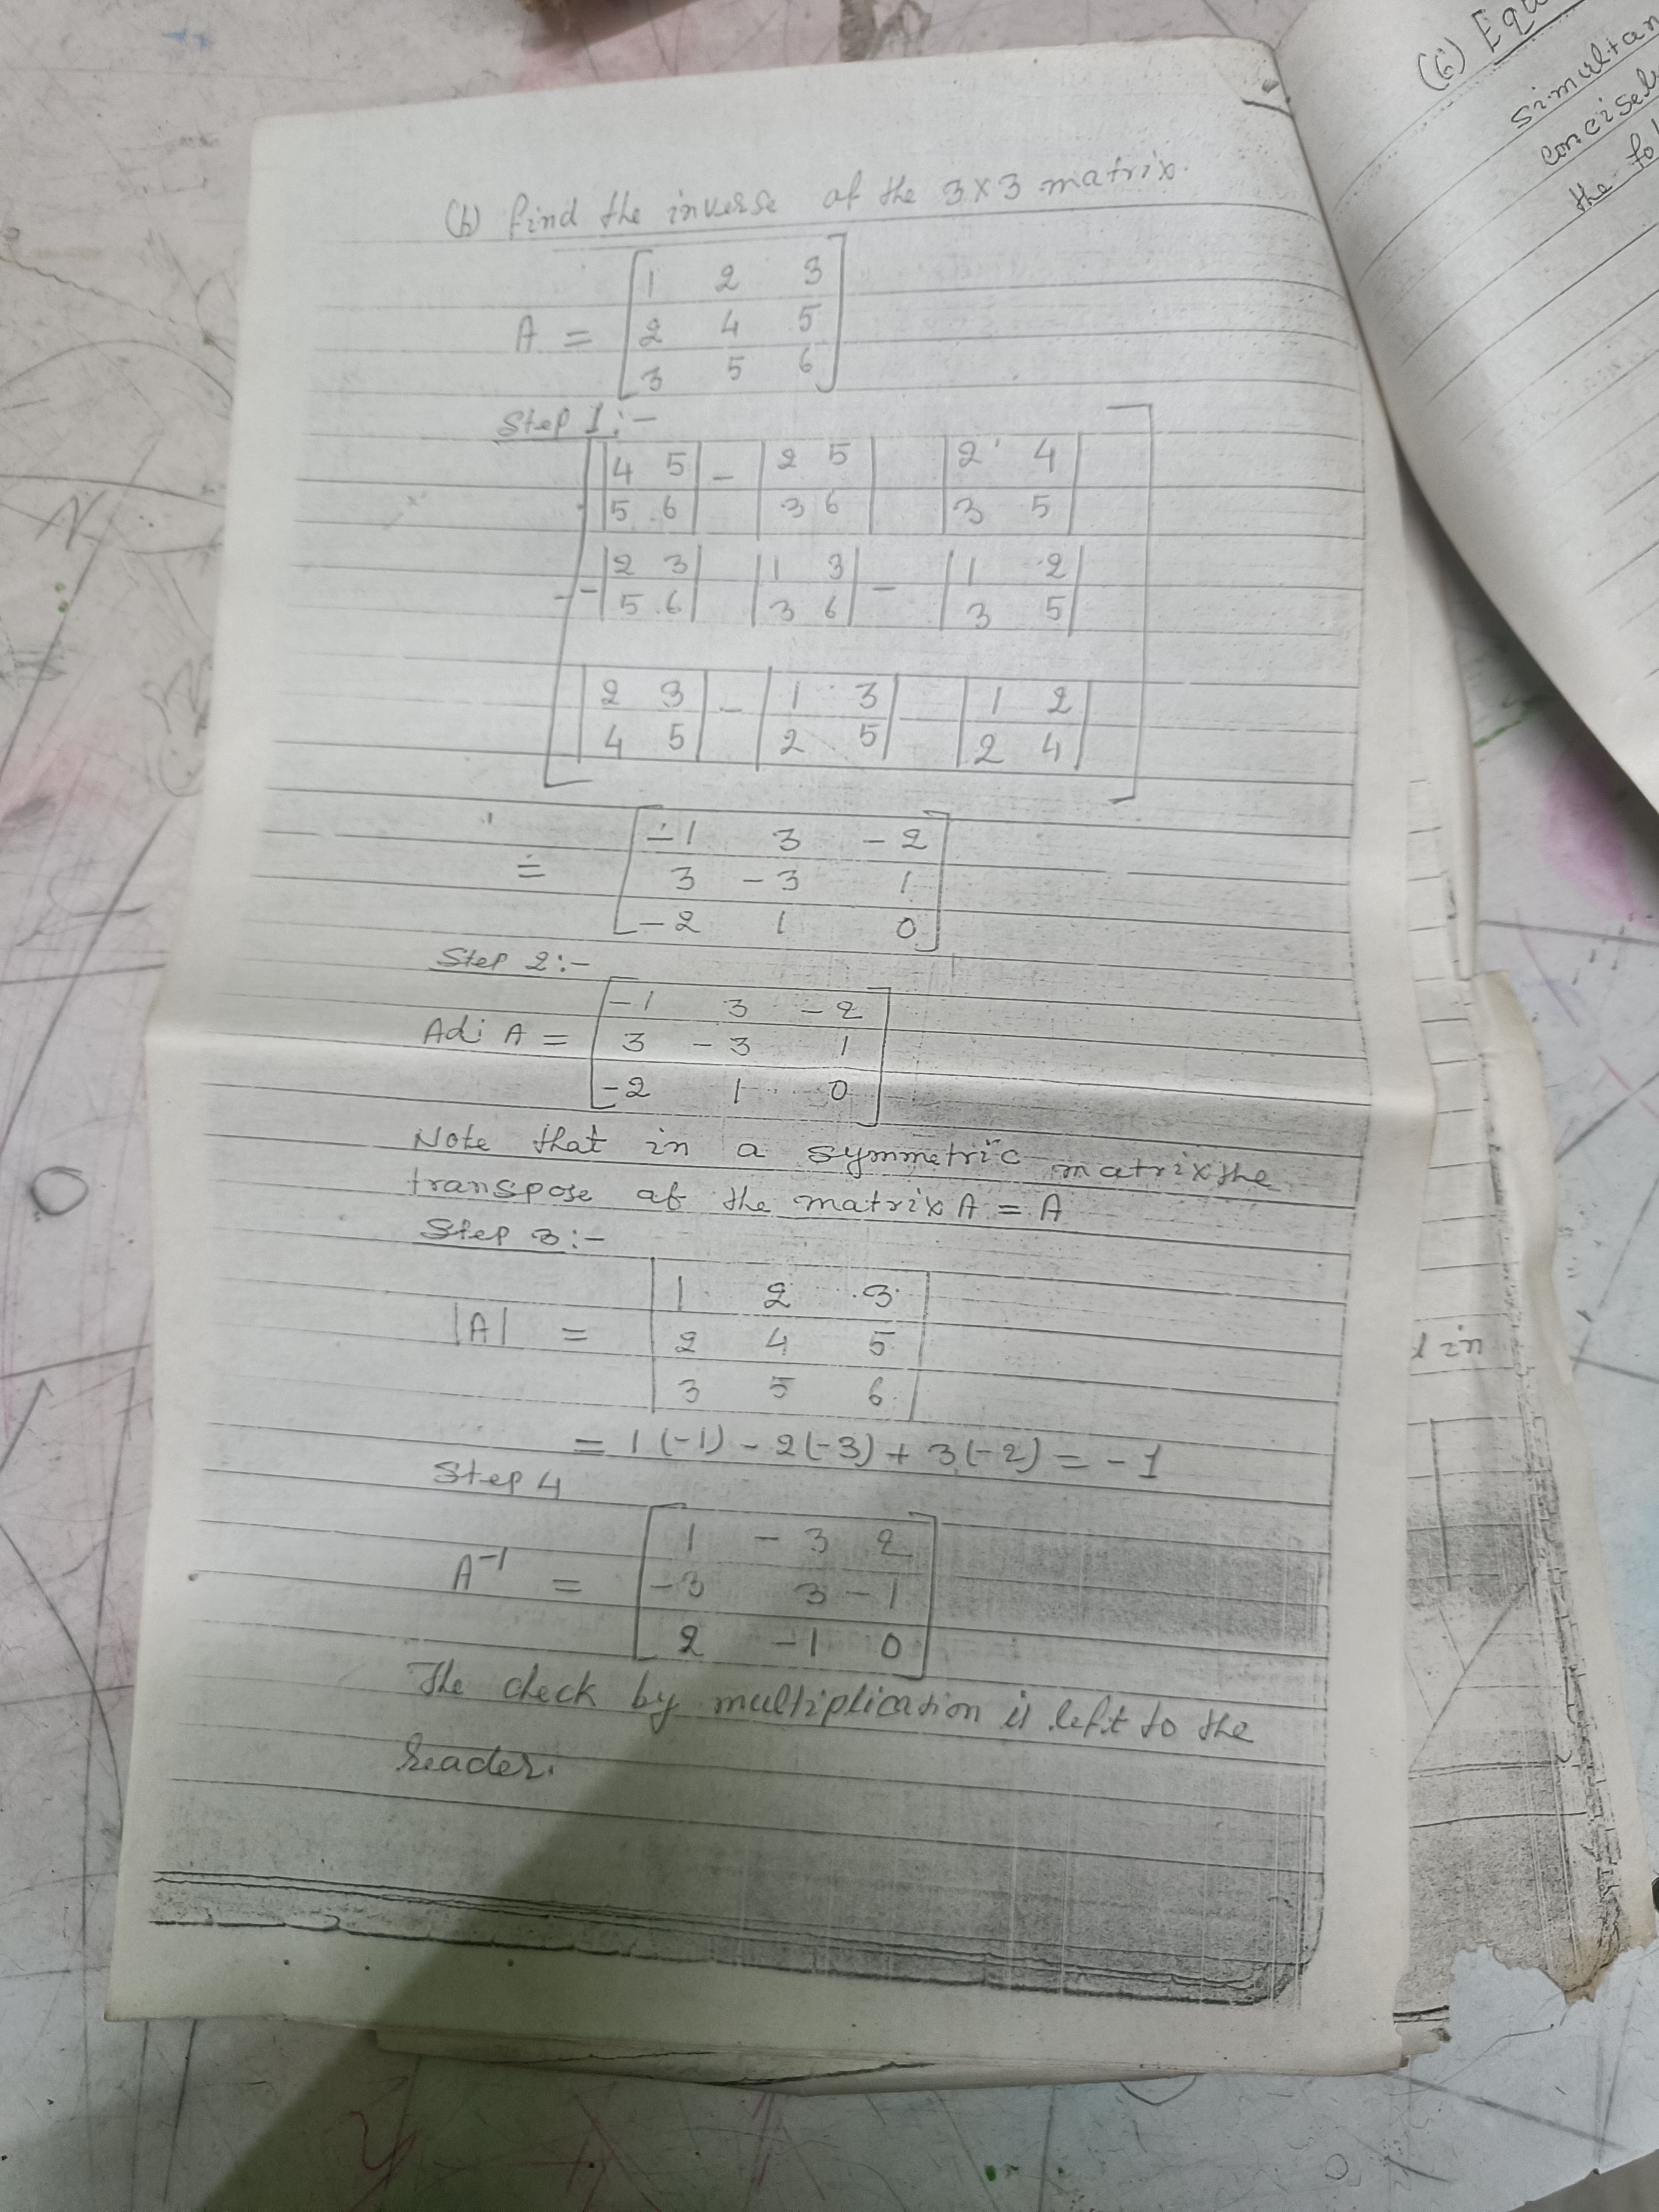 (b) find the inverse of the 3×3 matrix.
A = [1 2 3
2 4 5
3 5 6]
Step 1:-
[|4 5| - |2 5| |2 4|
|5 6| |3 6| |3 5|
-|2 3| |1 3| - |1 2|
|5 6| |3 6| |3 5|
|2 3| - |1 3| - |1 2|
|4 5| |2 5| |2 4|]
= [-1 3 -2
3 -3 1
-2 1 0]
Step 2:-
Adi A = [-1 3 -2
3 -3 1
-2 1 0]
Note that in a symmetric matrix the
transpose of the matrix A = A
Step 3:-
|A| = |1 2 3|
|2 4 5|
|3 5 6|
= 1(-1) - 2(-3) + 3(-2) = -1
Step 4
A⁻¹ = [1 -3 2
-3 3 -1
2 -1 0]
The check by multiplication is left to the
reader.
(6)
simultan
concisel
the fo
d in